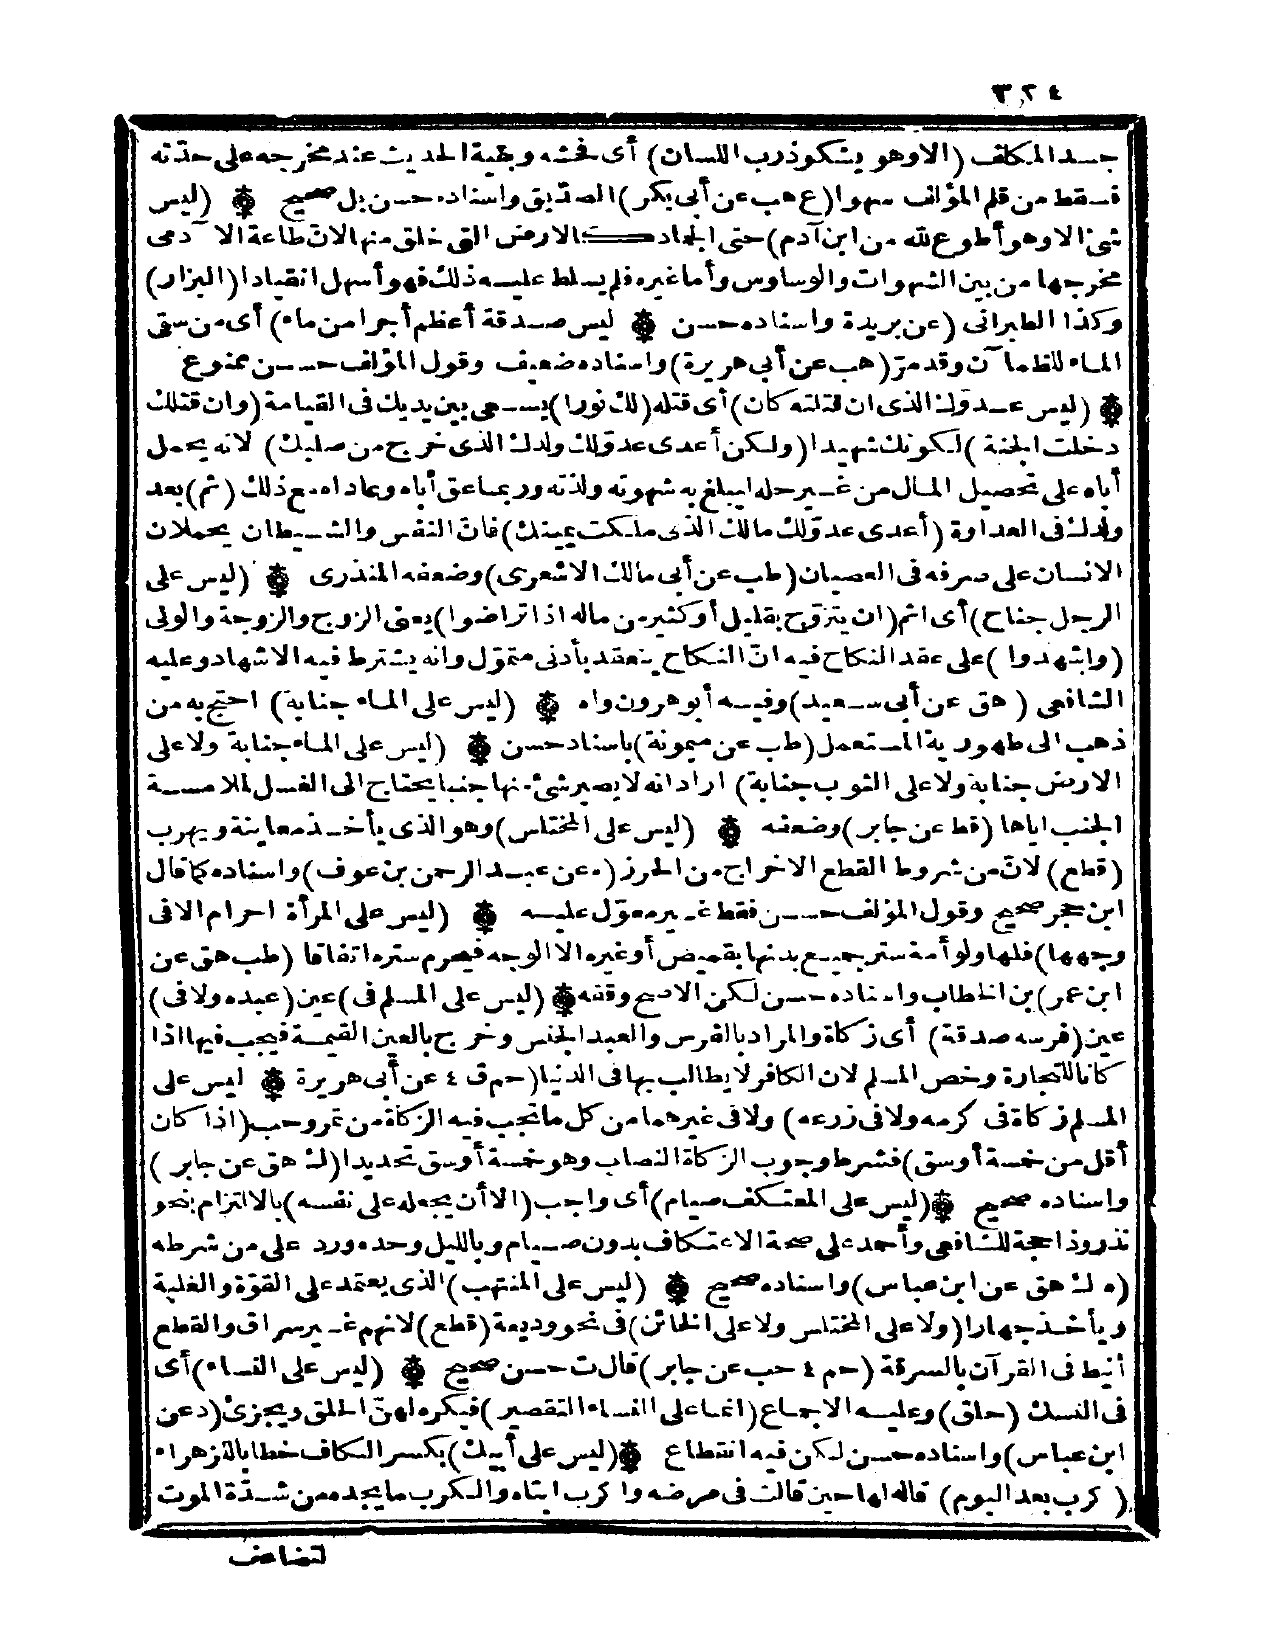 ٣٢٤
جسد المكلف (الا وهو يشكو ذرب اللسان) أى فحشه وبقية الحديث عند مخرجه على حدته
فسقط من قلم المؤلف سهوا (ع هب عن أبى بكر) الصديق واسناده حسن بل صحيح ۞ (ليس
شئ الا وهو أطوع لله من ابن آدم) حتى الجماد كالارض التى خلق منها لان طاعة الآدمى
مخرجها من بين الشهوات والوساوس وأما غيره فلم يسلط عليه ذلك فهو أسهل انقيادا (البزار)
وكذا الطبرانى (عن بريدة واسناده حسن ۞ ليس صدقة أعظم أجرا من ماء) أى من سقى
الماء للظمآن وقد مرّ (هب عن أبي هريرة) واسناده ضعيف وقول المؤلف حسن ممنوع
۞ (ليس عدوّك الذى ان قتلته كان) أى قتله (لك نورا) يسعى بين يديك فى القيامة (وان قتلك
دخلت الجنة) لكونك شهيدا (ولكن أعدى عدوّلك ولدك الذى خرج من صلبك) لانه يحمل
أباه على تحصيل المال من غير حله ليبلغ به شهوته ولذته وربما عق أباه وعاداه مع ذلك (ثم) بعد
ولدك فى العداوة (أعدى عدوّلك مالك الذى ملكت يمينك) فانّ النفس والشيطان يحملان
الانسان على صرفه فى العصيان (طب عن أبى مالك الاشعرى) وضعفه المنذرى ۞ (ليس على
الرجل جناح) أى اثم (ان يتزوّج بقليل أو كثير من ماله اذا تراضوا) يعنى الزوج والزوجة والولى
(واشهدوا) على عقد النكاح فيه انّ النكاح ينعقد بأدنى متموّل وانه يشترط فيه الاشهاد وعليه
الشافعى (هق عن أبى سعيد) وفيه أبو هرون واه ۞ (ليس على الماء جنابة) احتج به من
ذهب الى طهورية المستعمل (طب عن ميمونة) باسناد حسن ۞ (ليس على الماء جنابة ولا على
الارض جنابة ولا على الثوب جنابة) اراد انه لا يصير شئ منها جنبا يحتاج الى الغسل لملامسة
الجنب اياها (قط عن جابر) وضعفه ۞ (ليس على المختلس) وهو الذى يأخذ معاينة ويهرب
(قطع) لانّ من شروط القطع الاخراج من الحرز (ه عن عبد الرحمن بن عوف) واسناده كما قال
ابن حجر صحيح وقول المؤلف حسن فقط غير معوّل عليه ۞ (ليس على المرأة احرام الا فى
وجهها) فلها ولو أمة ستر جميع بدنها بقميص أو غيره الا الوجه فيحرم ستره اتفاقا (طب هق عن
ابن عمر) بن الخطاب واسناده حسن لكن الاصح وقفه ۞ (ليس على المسلم فى) عين (عبده ولا فى)
عين (فرسه صدقة) أى زكاة والمراد بالفرس والعبد الجنس وخرج بالعين القيمة فيجب فيها اذا
كانا للتجارة وخص المسلم لان الكافر لا يطالب بها فى الدنيا (حم ق ٤ عن أبى هريرة ۞ ليس على
المسلم زكاة فى كرمه ولا فى زرعه) ولا فى غيرهما من كل ما تجب فيه الزكاة من تمر وحب (اذا كان
أقل من خمسة أوسق) فشرط وجوب الزكاة النصاب وهو خمسة أوسق تحديدا (ك هق عن جابر)
واسناده صحيح ۞ (ليس على المعتكف صيام) أى واجب (الا أن يجعله على نفسه) بالالتزام بنحو
نذر وذا حجة للشافعى وأحمد على صحة الاعتكاف بدون صيام وبالليل وحده ورد على من شرطه
(ه ك هق عن ابن عباس) واسناده صحيح ۞ (ليس على المنتهب) الذى يعتمد على القوّة والغلبة
ويأخذ جهارا (ولا على المختلس ولا على الخائن) فى نحو وديعة (قطع) لانهم غير سراق والقطع
أنيط فى القرآن بالسرقة (حم ٤ حب عن جابر) قال ت حسن صحيح ۞ (ليس على النساء) أى
فى النسك (حلق) وعليه الاجماع (انما على النساء التقصير) فيكره لهنّ الحلق ويجزئ (د عن
ابن عباس) واسناده حسن لكن فيه انقطاع ۞ (ليس على أبيك) بكسر الكاف خطابا للزهراء
(كرب بعد اليوم) قاله لها حين قالت فى مرضه وا كرب ابتاه والكرب ما يجده من شدّة الموت
لتضاعف